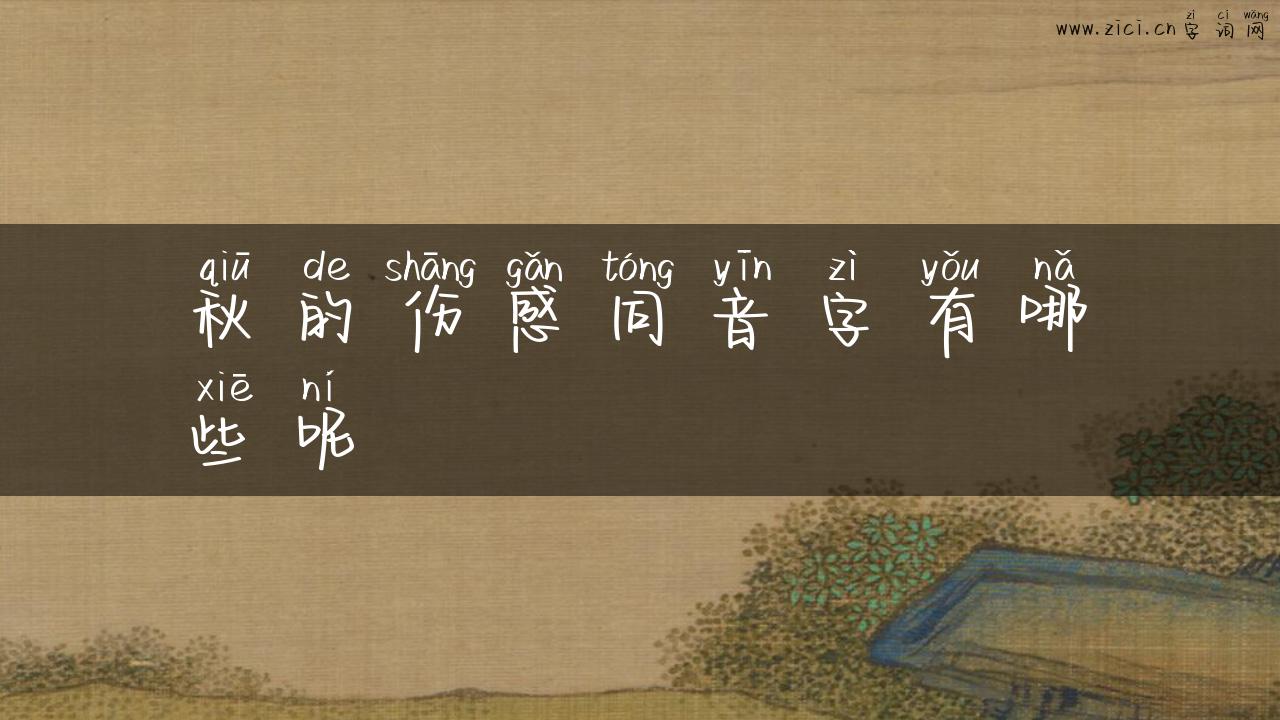 zì cí wǎng
www.zici.cn 字 词 网
qiū de shāng gǎn tóng yīn zì yǒu nǎ
秋 的 伤 感 同 音 字 有 哪
xiē ní
些 呢